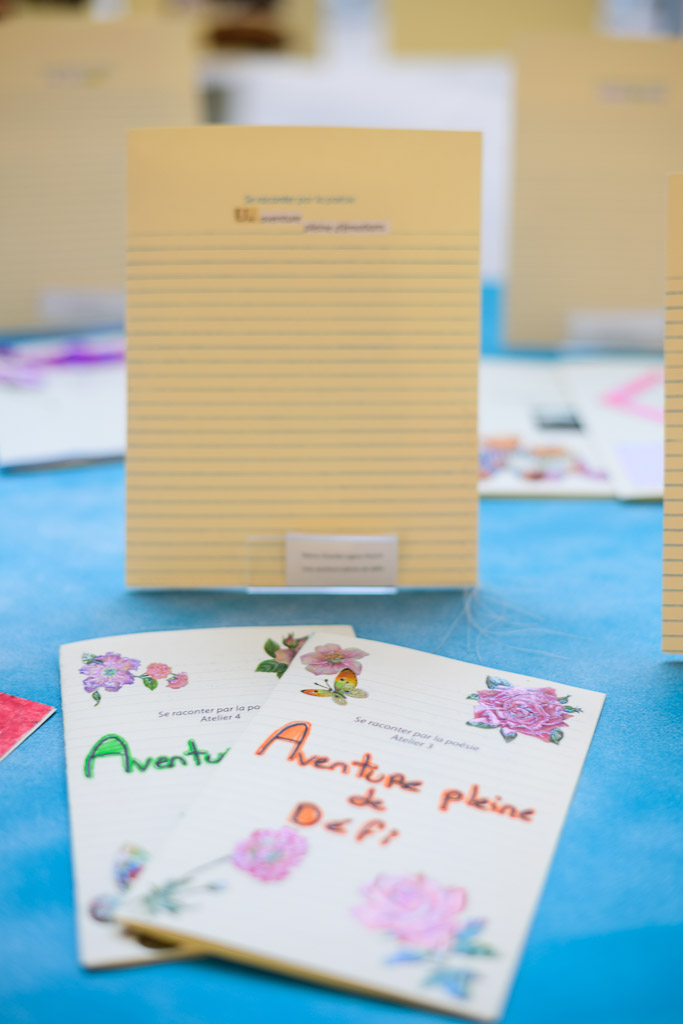 Se raconter par la poésie
aventure
pleine d'émotions
Se raconter par la po
Atelier 4
Aventu
Se raconter par la poésie
Atelier 3
Aventure pleine
de
Défi